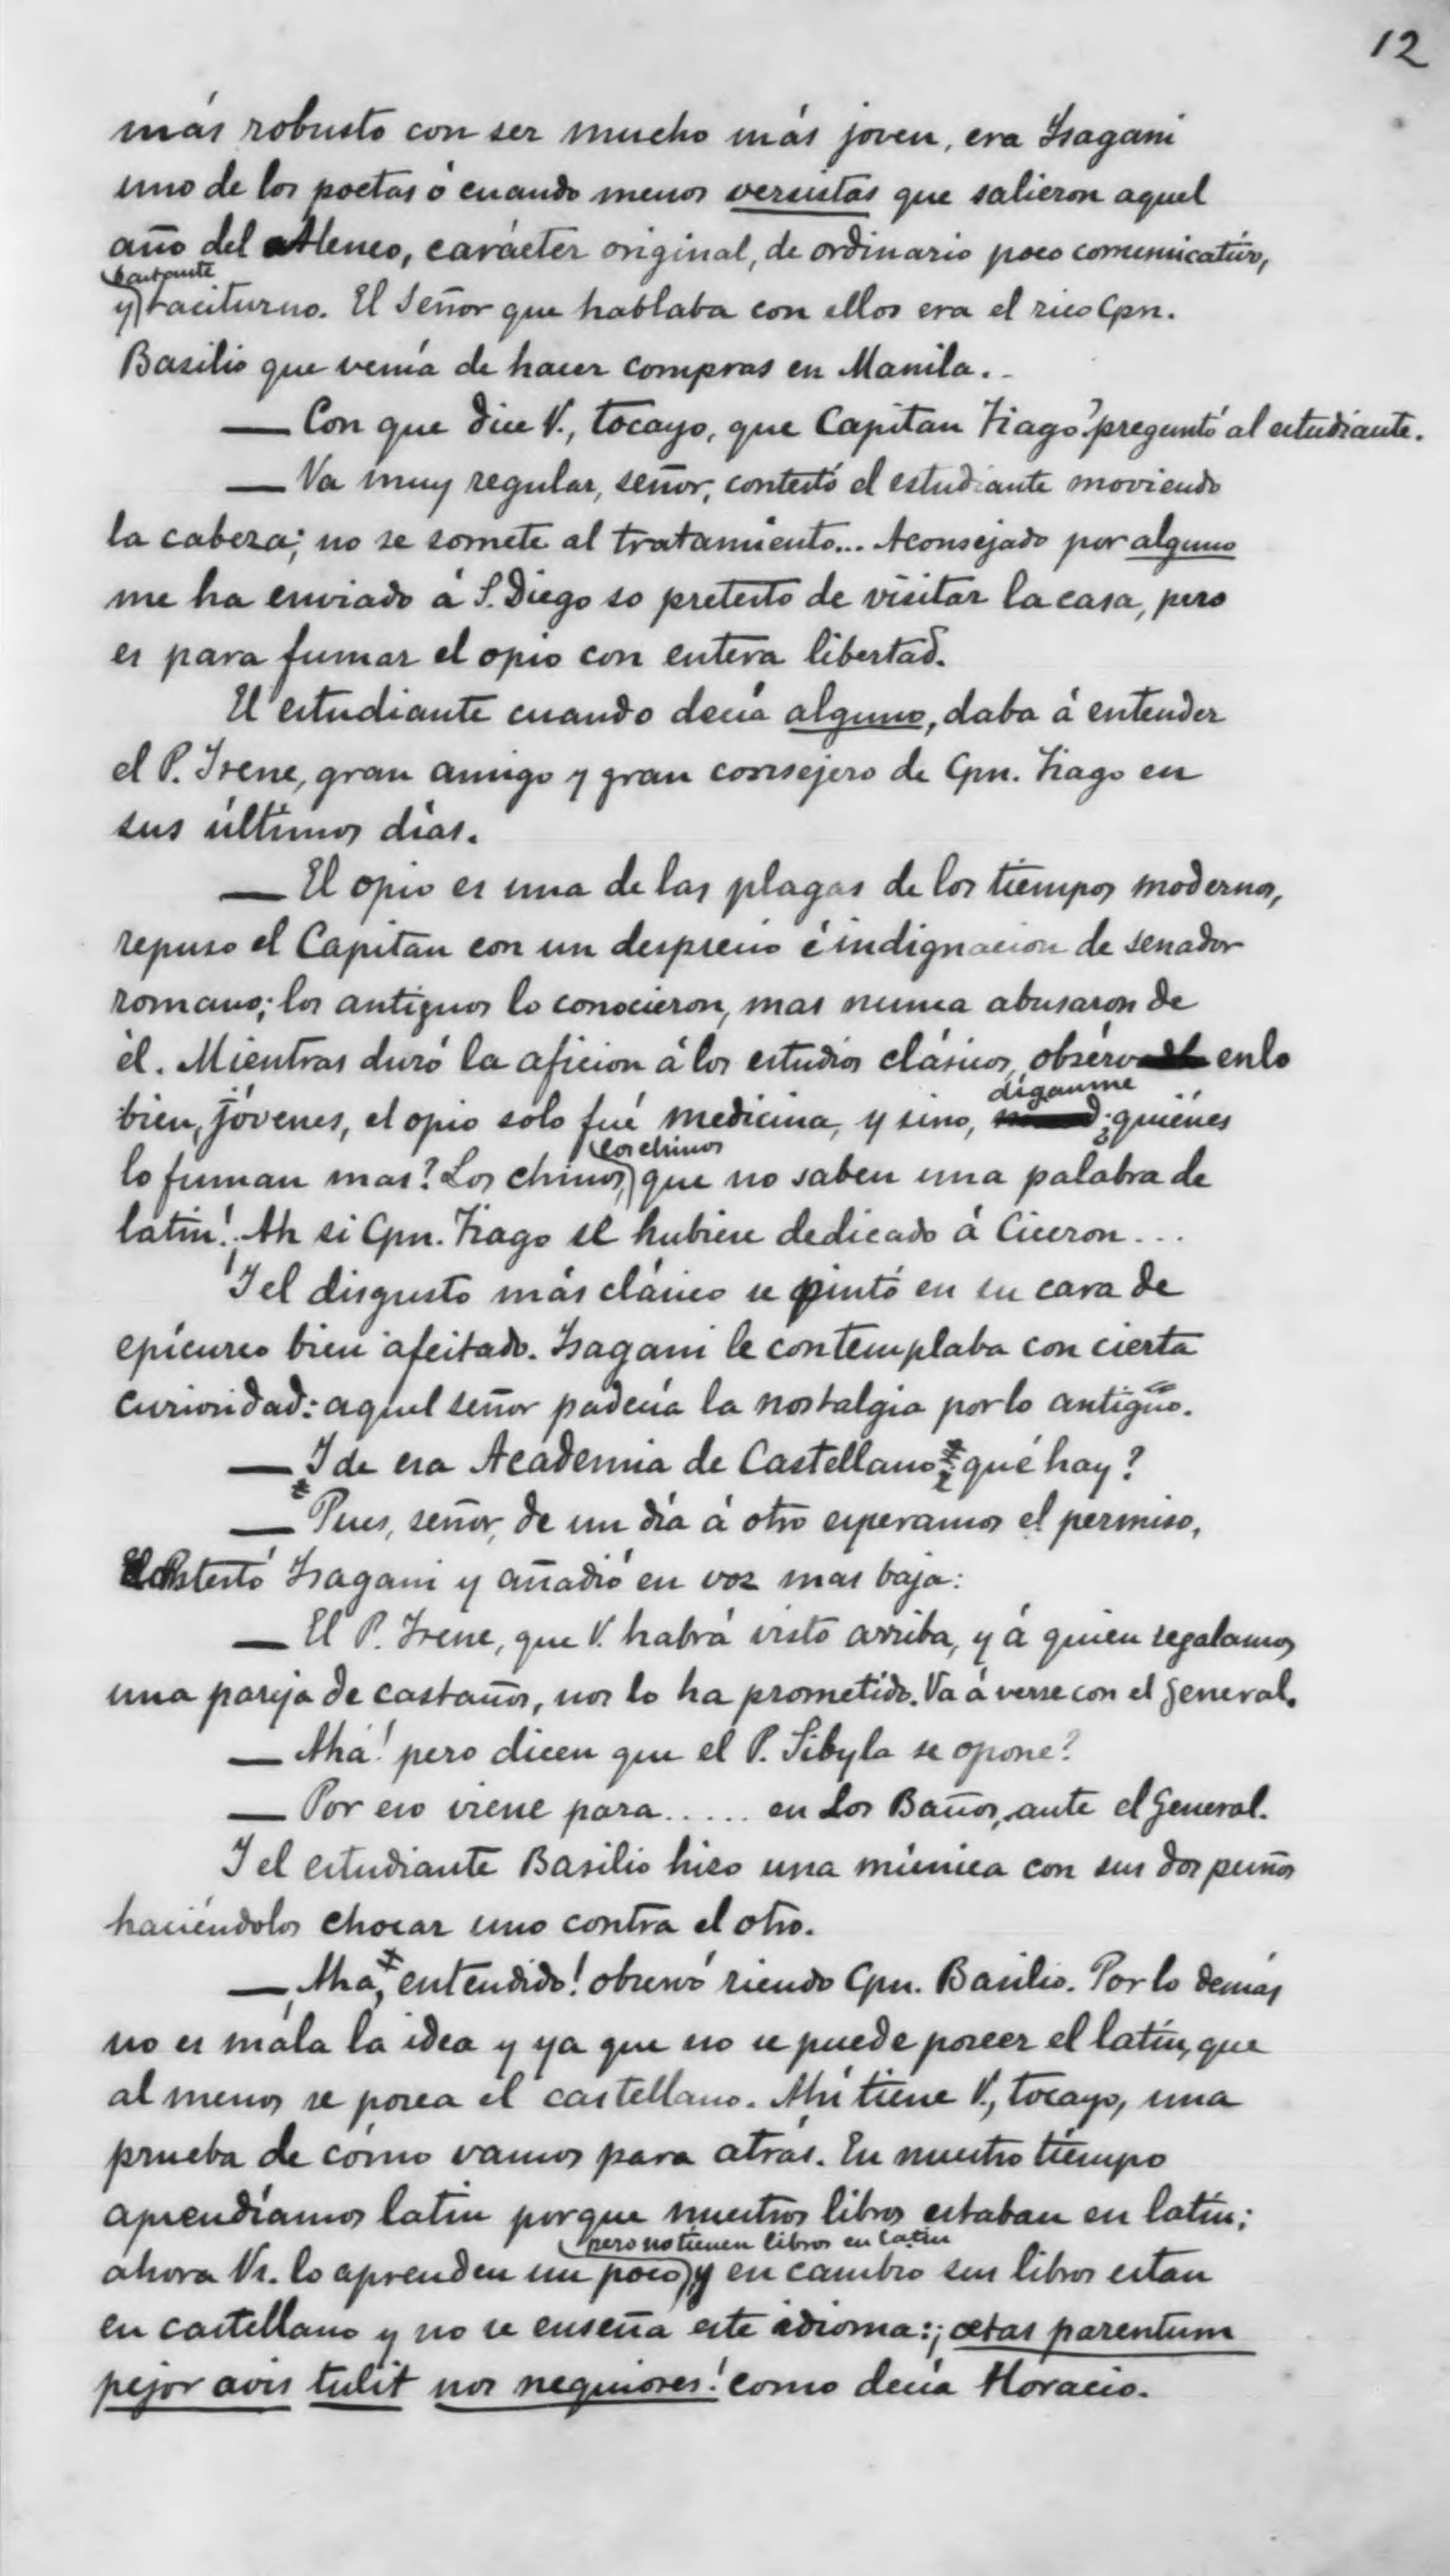 12
más robusto con ser mucho más joven, era Isagani
uno de los poetas ó cuando menos versistas que salieron aquel
año del Ateneo, carácter original, de ordinario poco comunicativo,
bastante
y taciturno. El Señor que hablaba con ellos era el rico Cpn.
Basilio que venía de hacer compras en Manila..
— Con que dice V., tocayo, que Capitan Tiago? preguntó al estudiante.
— Va muy regular, señor, contestó el estudiante moviendo
la cabeza; no se somete al tratamiento... Aconsejado por alguno
me ha enviado á S. Diego so pretesto de visitar la casa, pero
es para fumar el opio con entera libertad.
El estudiante cuando decía alguno, daba á entender
el P. Irene, gran amigo y gran consejero de Cpn. Tiago en
sus últimos días.
— El opio es una de las plagas de los tiempos modernos,
repuso el Capitan con un desprecio é indignacion de senador
romano; los antiguos lo conocieron, mas nunca abusaron de
él. Mientras duró la aficion á los estudios clásicos, observ enlo
díganme
bien, jóvenes, el opio solo fué medicina, y sino, ¿quiénes
los chinos
lo fuman mas? Los chinos, que no saben una palabra de
latin! ¡Ah si Cpn. Tiago se hubiese dedicado á Ciceron...
Y el disgusto más clásico se pintó en su cara de
epícureo bien afeitado. Isagani le contemplaba con cierta
curiosidad: aquel señor padecía la nostalgia por lo antiguo.
— Y de esa Academia de Castellano ¿qué hay?
— Pues, señor, de un día á otro esperamos el permiso,
contestó Isagani y añadió en voz mas baja:
— El P. Irene, que V. habrá visto arriba, y á quien regalamos
una pareja de castaños, nos lo ha prometido. Va á verse con el General.
— Ahá! pero dicen que el P. Sibyla se opone?
— Por eso viene para ..... en Los Baños, ante el General.
Y el estudiante Basilio hizo una mímica con sus dos puños
haciéndolos chocar uno contra el otro.
— ¡Ahá, entendido! observó riendo Cpn. Basilio. Por lo demás
no es mala la idea y ya que no se puede poseer el latín, que
al menos se posea el castellano. Ahí tiene V., tocayo, una
prueba de cómo vamos para atrás. En nuestro tiempo
aprendíamos latin porque nuestros libros estaban en latín;
pero no tienen libros en latin
ahora Vs. lo aprenden un poco y en cambio sus libros estan
en castellano y no se enseña este idioma: ¡ætas parentum
pejor avis tulit nos nequiores! como decía Horacio.